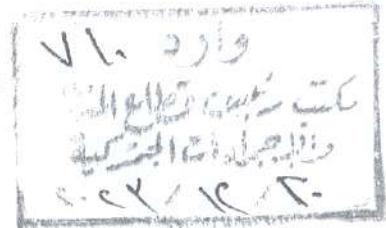 وارد ٧١٠
مكتب رئيس قطاع
والإجراءات الجمركية
٢٠٢٣/١٢/٢٠